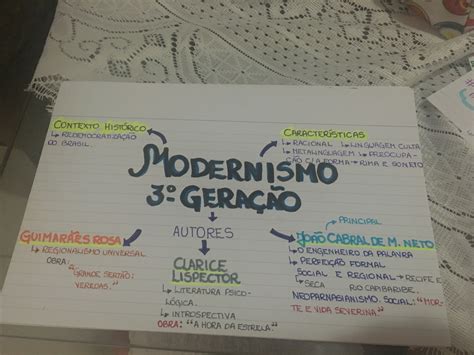 CONTEXTO HISTÓRICO
↳ REDEMOCRATIZAÇÃO
DO BRASIL
CARACTERÍSTICAS
↳ RACIONAL ↳ LINGUAGEM CULTA
↳ METALINGUAGEM ↳ PREOCUPA-
ÇÃO C/A FORMA → RIMA E SONETO
MODERNISMO
3º GERAÇÃO
AUTORES
GUIMARÃES ROSA
↳ REGIONALISMO UNIVERSAL
OBRA:
"GRANDE SERTÃO:
VEREDAS."
CLARICE
LISPECTOR
↳ LITERATURA PSICO-
LÓGICA.
↳ INTROSPECTIVA
OBRA: "A HORA DA ESTRELA."
PRINCIPAL
JOÃO CABRAL DE M. NETO
↳ O ENGENHEIRO DA PALAVRA
↳ PERFEIÇÃO FORMAL
SOCIAL E REGIONAL → RECIFE E
↳ SECA RIO CAMBARIBE.
NEOPARNASIANISMO SOCIAL: "MOR-
TE E VIDA SEVERINA"